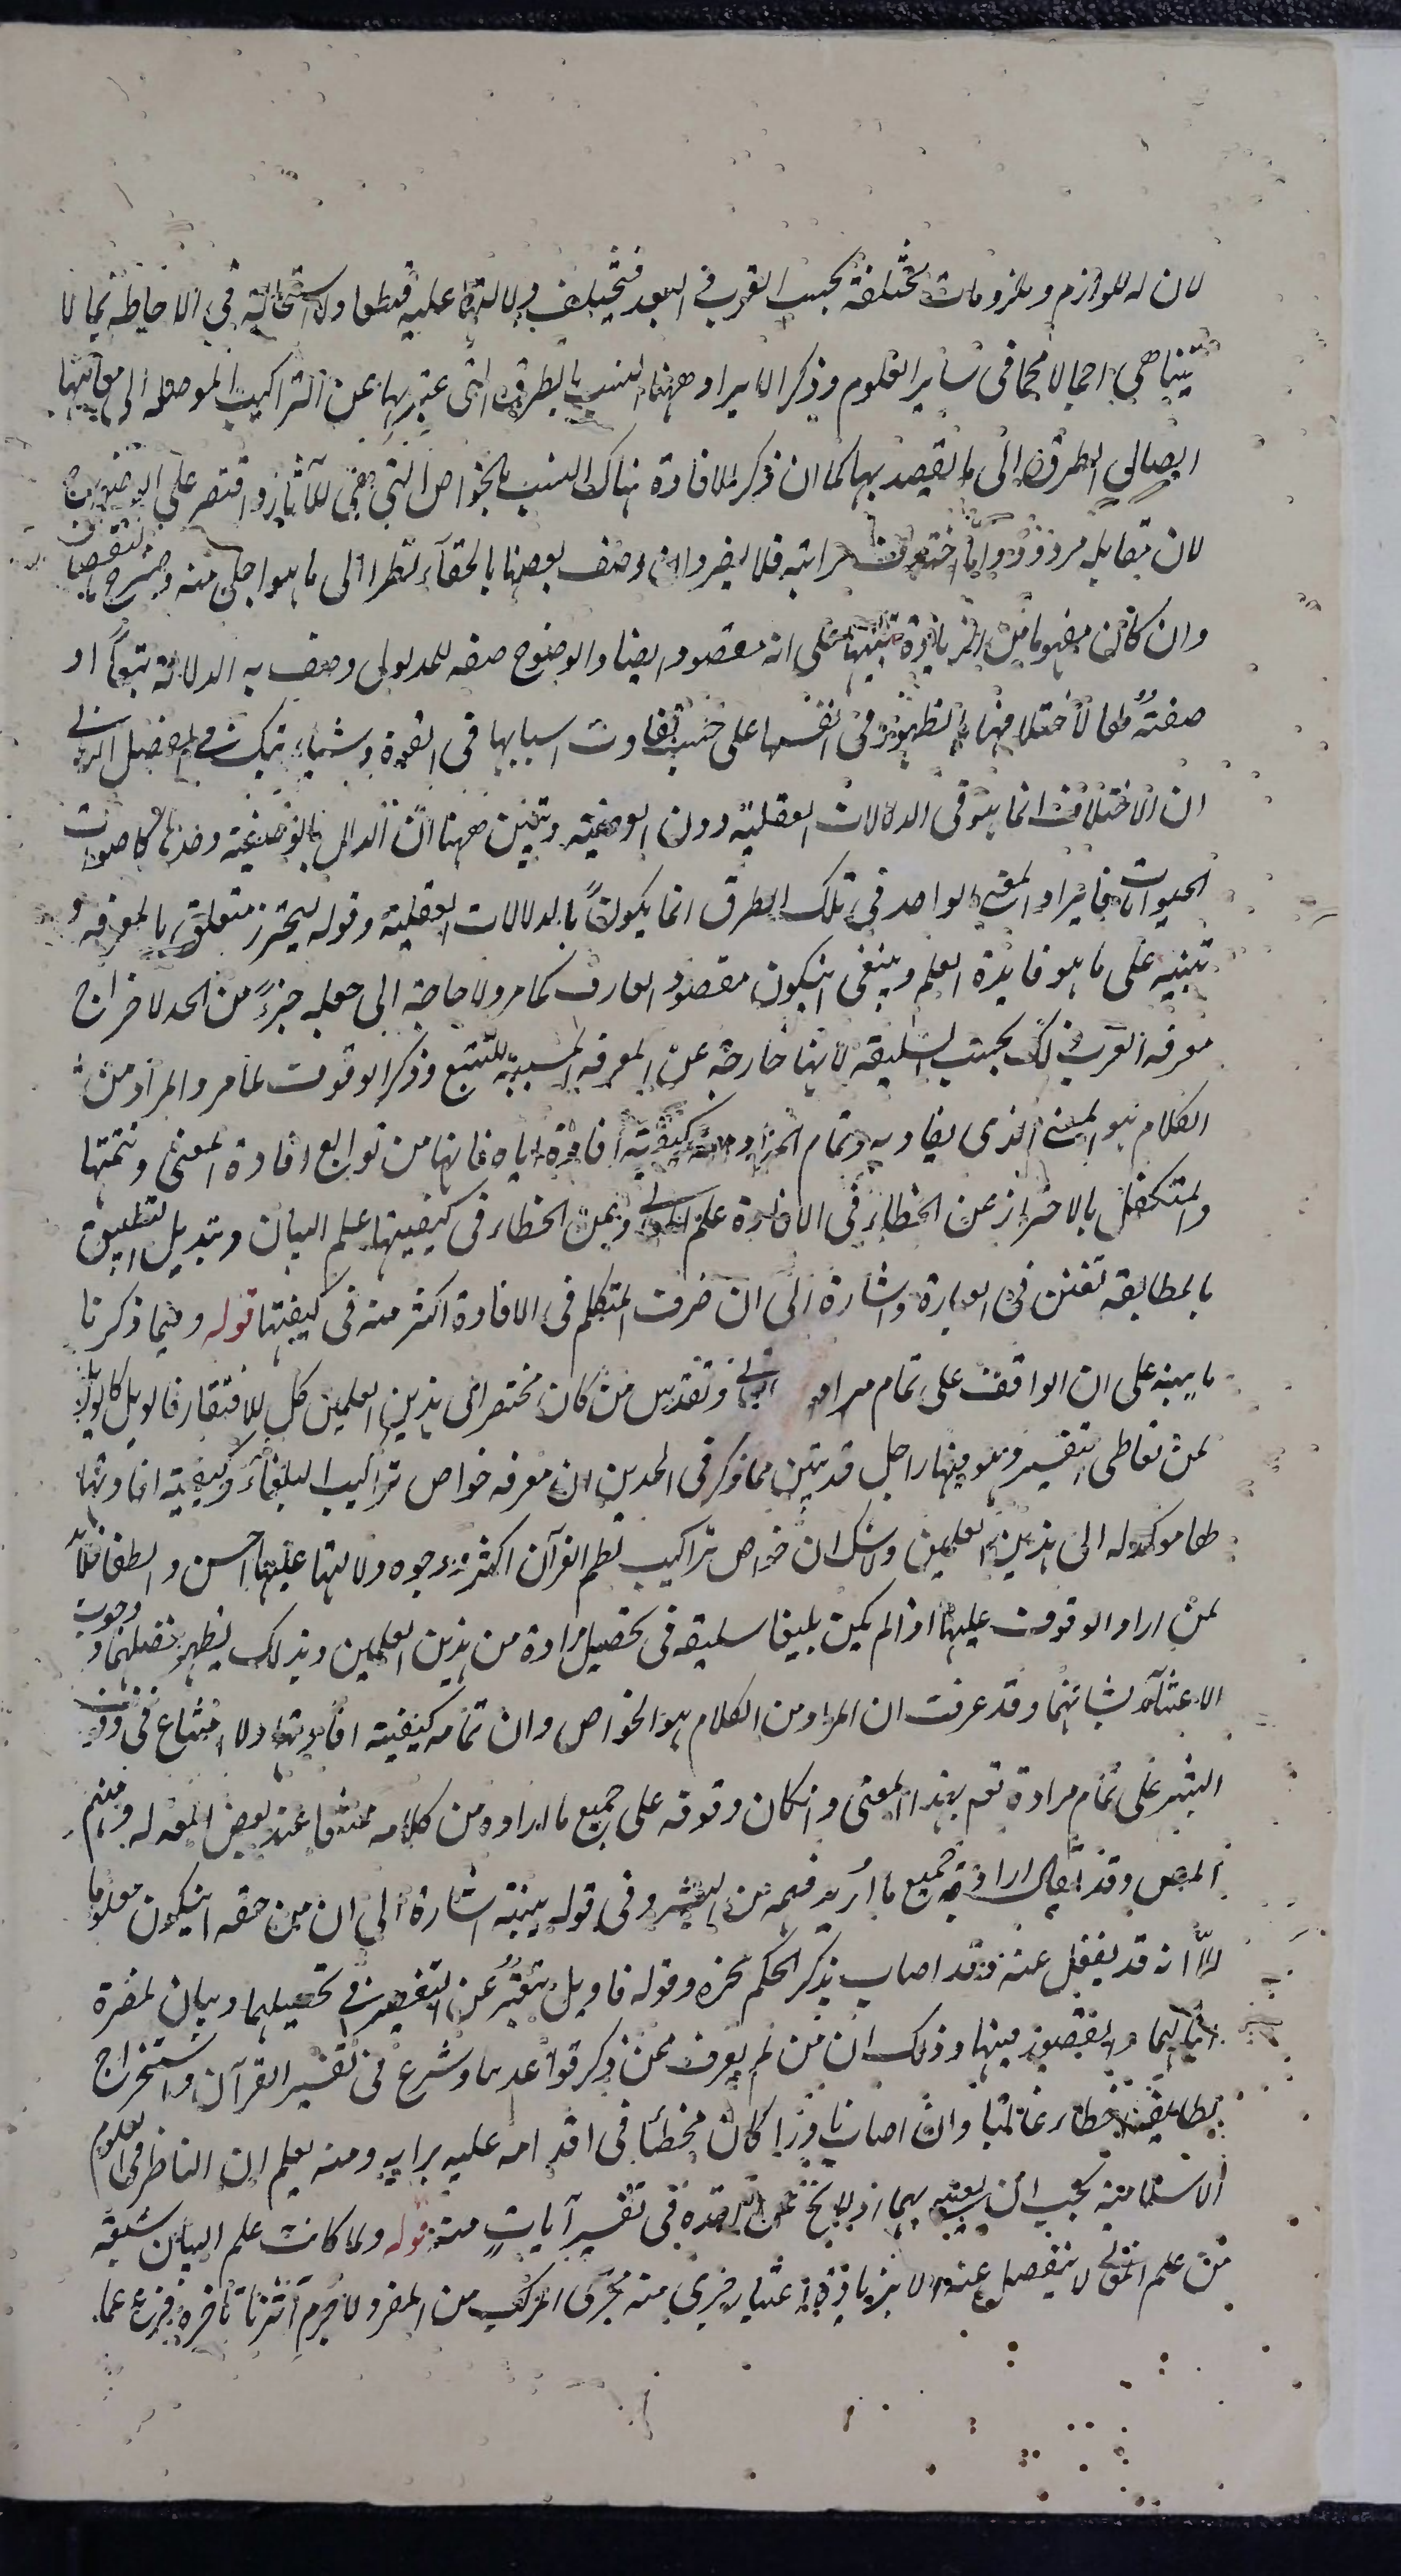 لان له للوازم وملزومات مختلفة بحسب القرب و البعد فتختلف دلالتها عليه قطعا ولا استحالة في الاحاطة بما لا
يتناهى اجمالا كما في ساير العلوم وذكر الايراد ههنا انسب بالطرق التى عبر بها عن التراكيب الموصلة الى معانيها
ايصال الطرق الى ما يقصد بها كما ان ذكر الافادة هناك انسب بالخواص التي هي كالآثار واقتصر على الوضوح
لان مقابله مردود واما اختلاف مراتبه فلا يضر وان وصف بعضها بالخفآء نظرا الى ما هو اجلى منه وصرح بالنقصان
وان كان مفهوما من الزيادة تنبيها على انه مقصود ايضا والوضوح صفه للمدلول وصف به الدلالة تبعا او
صفة لها لاختلافها بالظهور في انفسها على حسب تفاوت اسبابها في القوة وسيأتيك في الفصل الثانى
ان الاختلاف انما هو فى الدلالات العقلية دون الوضعية وتبين ههنا ان الدال بالوضعية وحدها كاصوات
الحيوانات فايراد المعنى الواحد في تلك الطرق انما يكون بالدلالات العقلية وقوله ليحترز متعلق بالمعرفه و
تنبيه على ما هو فايدة العلم وينبغى ان يكون مقصود العارف كما مر ولا حاجة الى جعله جزءً من الحد لاخراج
معرفه العرب ذلك بحسب السليقه لانها خارجة عن المعرفه المسببة للتتبع وذكر الوقوف لما مر والمراد من
الكلام هو المعنى الذى يفاد به وتمام المراد منه كيفية افادة اياه فانها من توابع افادة المعنى وتتمتها
والمتكفل بالاحتراز عن الخطاء في الافادة علم المعانى وعن الخطاء فى كيفيتها علم البيان وتبديل التطبيق
بالمطابقه تفنن في العبارة واشارة الى ان تصرف المتكلم في الافادة اكثر منه فى كيفيتها قوله وفيما ذكرنا
ما ينبه على ان الواقف على تمام مراد وتقدس من كان مفتقرا الى هذين العلمين كل الافتقار فالويل كل الويل
لمن تعاطى التفسير وهو فيهما راجل قد تبين مما ذكر فى الحدين ان معرفه خواص تراكيب البلغاء وكيفية افادتها
لها موكوله الى هذين العلمين ولا شك ان خواص تراكيب نظم القرآن اكثر ووجوه دلالتها عليها احسن والطف فلا بد
لمن اراد الوقوف عليها اذا لم يكن بليغا سليقه فى تحصيل مراده من هذين العلمين وبذلك يظهر فضلهما و وجوب
الاعتنآء بشانهما وقد عرفت ان المراد من الكلام هو الخواص وان تمامه كيفية افادتها ولا امتناع فى وقوف
البشر على تمام مراده تعم بهذا المعنى وان كان وقوفه على جميع ما اراده من كلامه ممتنعا عند بعض المعتزلة ومنهم
المص وقد يقال ارادوا به جميع ما أريد فهمه من البشر وفى قوله ينبه اشارة الى ان من حقه ان يكون معلوما
الا انه قد يغفل عنه وقد اصاب بذكر الحكيم محزه وقوله فالويل تنفير عن التقصير فى تحصيلهما وبيان لمضرة
اهمالهما والقصور فيهما وذلك ان من لم يعرف ممن ذكر قواعدهما وشرع فى تفسير القرآن واستخراج
لطايفه اخطاء غالبا وان اصاب نادرا كان مخطئا فى اقدامه عليه برايه ومنه يعلم ان الناظر فى العلوم
الاسلامية يجب ان يعتنى بهما اذ لا بخ عن القصد فى تفسير آيات منه قوله ولما كانت علم البيان شعبة
من علم المعانى لا ينفصل عنه الا بزيادة اعتبار جرى منه مجرى المركب من المفرد لا جرم آثرنا تاخيره فرغ عما